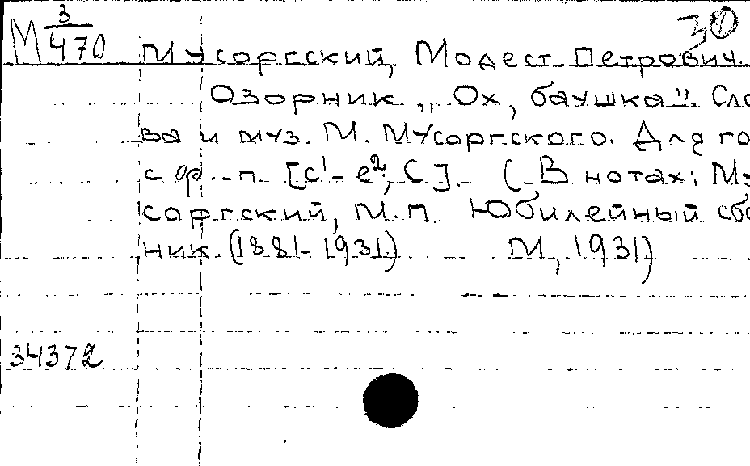 30
М 3/470
Мусоргский, Модест Петрович.
Озорник „Ох, баушка". Сло
ва и муз. М. Мусоргского. Для го
с ф.-п. [c¹-e², C]. (В нотах: Му
соргский, М.П. Юбилейный сбо
ник. (1881-1931) М, 1931)
34372